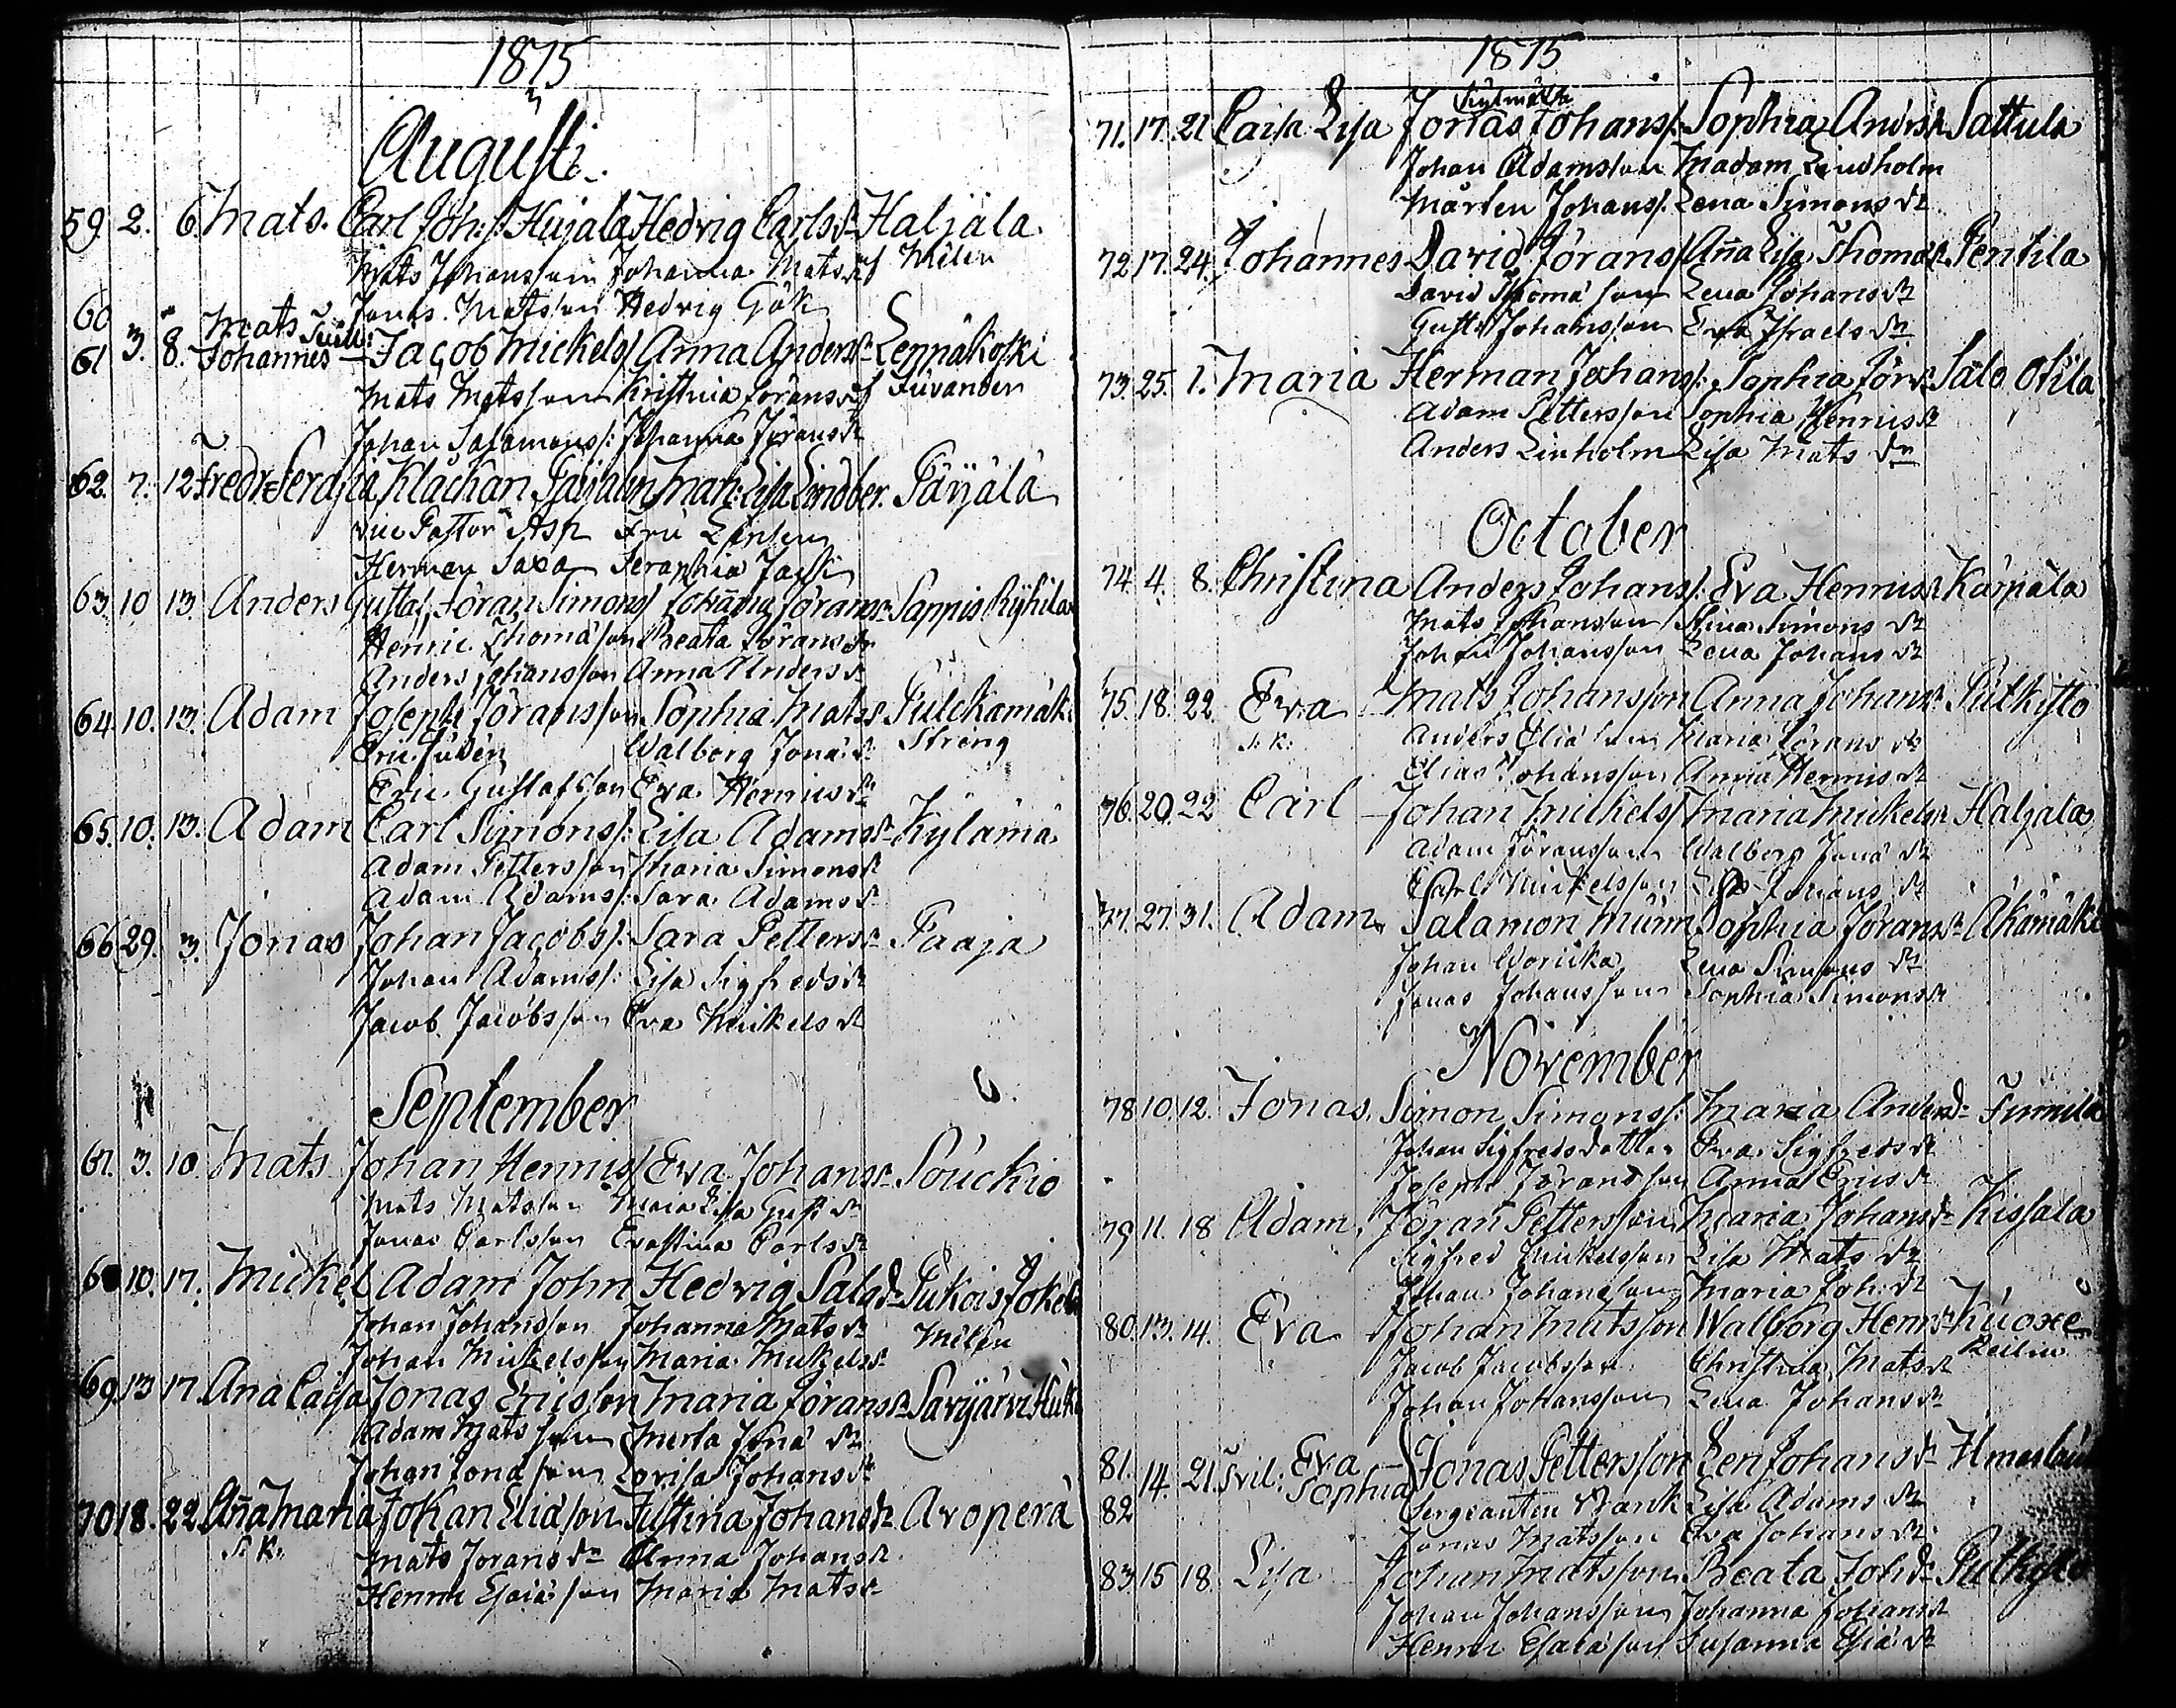 1815
Augusti.
59 2. 6. Mats. Carl Joh:s: Hujala Hedvig Carls dr Haljala
Mats Johansson Johanna Mats dr Milen
Jonas Matsson Hedvig Gök
60 Mats
61 3. 8. Johannes Jacob Mickels: Anna Anders dr Leppäkoski
Mats Matsson Kristina Jörans dr
Johan Salamons: Johanna Jörans dr
62. 7. 12 Fredr: Klåckan Maj: Lisa Lindber. Pärjälä
vice Pastor Asp Fru
Herman Saxa Seraphia
63. 10 13. Anders Gustaf Jöran Simons: Jörans dr Sappis
Henric Thomasson Beata Jörans dr
Anders Johansson Anna Anders dr
64. 10. 13. Adam Joseph Jöransson Sophia Mats dr Pulckamäki
Eric Walborg Jona dr String
Eric Gustafsson Eva Henrics dr
65. 10. 13. Adam Carl Simons: Lisa Adams dr Kylämä
Adam Pettersson Maria Simons dr
Adam Adams: Sara Adams dr
66 29. 3. Jonas Johan Jacobs: Sara Petters dr Paaja
Johan Adams: Lisa Sigfreds dr
Jacob Jacobsson Eva Mickels dr
September
67. 3. 10. Mats Johan Henrics: Eva Johans dr Souckio
Mats Matsson Maria Lisa Gust dr
Jonas Carlsson Eva Stina Carls dr
68 10. 17. Mickel Adam John Hedvig Sala dr
Johan Johansson Johanna Mats dr Milén
Johan Mickelsson Maria Mickels dr
69 13 17. Ana Cajsa Jonas Ericsson Maria Jörans dr
Adam Matsson Merta Jona dr
Johan Jonasson Lovisa Johans dr
70 18. 22. Aña Maria Johan Eliasson Justina Johans dr Avoperä
S. K. Mats Jörans dr Anna Johans dr
Henric Esaiasson Maria Mats dr
1815
71. 17. 21 Caisa Lisa Jonas Johans: Sophia Anders dr Sattula
Johan Adamsson Madam Lindholm
Mårten Johans: Lena Simons dr
72 17. 24. Johannes David Jörans: Aña Lisa Thoma dr Pentila
David Thomasson Lena Johans dr
Gust: Johansson Eva Israels dr
73. 25. 1. Maria Herman Johans: Sophia Jör dr Salo
Adam Pettersson Sophia Henrics dr
Anders Linholm Lisa Mats dr
October
74. 4. 8. Christina Anders Johans: Eva Henrics dr Kärpälä
Mats Johansson Stina Simons dr
Johan Johansson Lena Johans dr
75. 18. 22. Eva Mats Johansson Anna Johans dr
S. K. Anders Eliasson Maria Jörans dr
Elias Johansson Anna Henrics dr
76. 20. 22 Carl Johan Mickels: Maria Mickels dr Haljala
Adam Jöransson Walborg Jona dr
Carl Mickelsson Lisa Johans dr
77. 27. 31. Adam Salamon Munn Sophia Jörans dr
Johan Lena Simons dr
Jonas Johansson Sophia Simons dr
November
78 10. 12. Jonas. Simon Simons: Maria Anders dr
Johan Sigfredsdotter Eva Sigfreds dr
Joseph Jöransson Anna Erics dr
79 11. 18 Adam. Jöran Pettersson Maria Johans dr Kissala
Sigfred Mickelsson Lisa Mats dr
Johan Johansson Maria Joh: dr
80. 13. 14. Eva Johan Matsson Walborg Henr: dr
Jacob Jacobsson Christina Mats dr
Johan Johansson Lena Johans dr
81. 14. 21. Tvil: Eva Jonas Pettersson Len Johans dr
82 Sophia Sergeanten Brank Lisa Adams dr
Jonas Matsson Eva Johans dr
83. 15 18 Lisa Johan Matsson Beata Joh dr
Johan Johansson Johanna Johans dr
Henric Esaiasson Susanna Esia dr